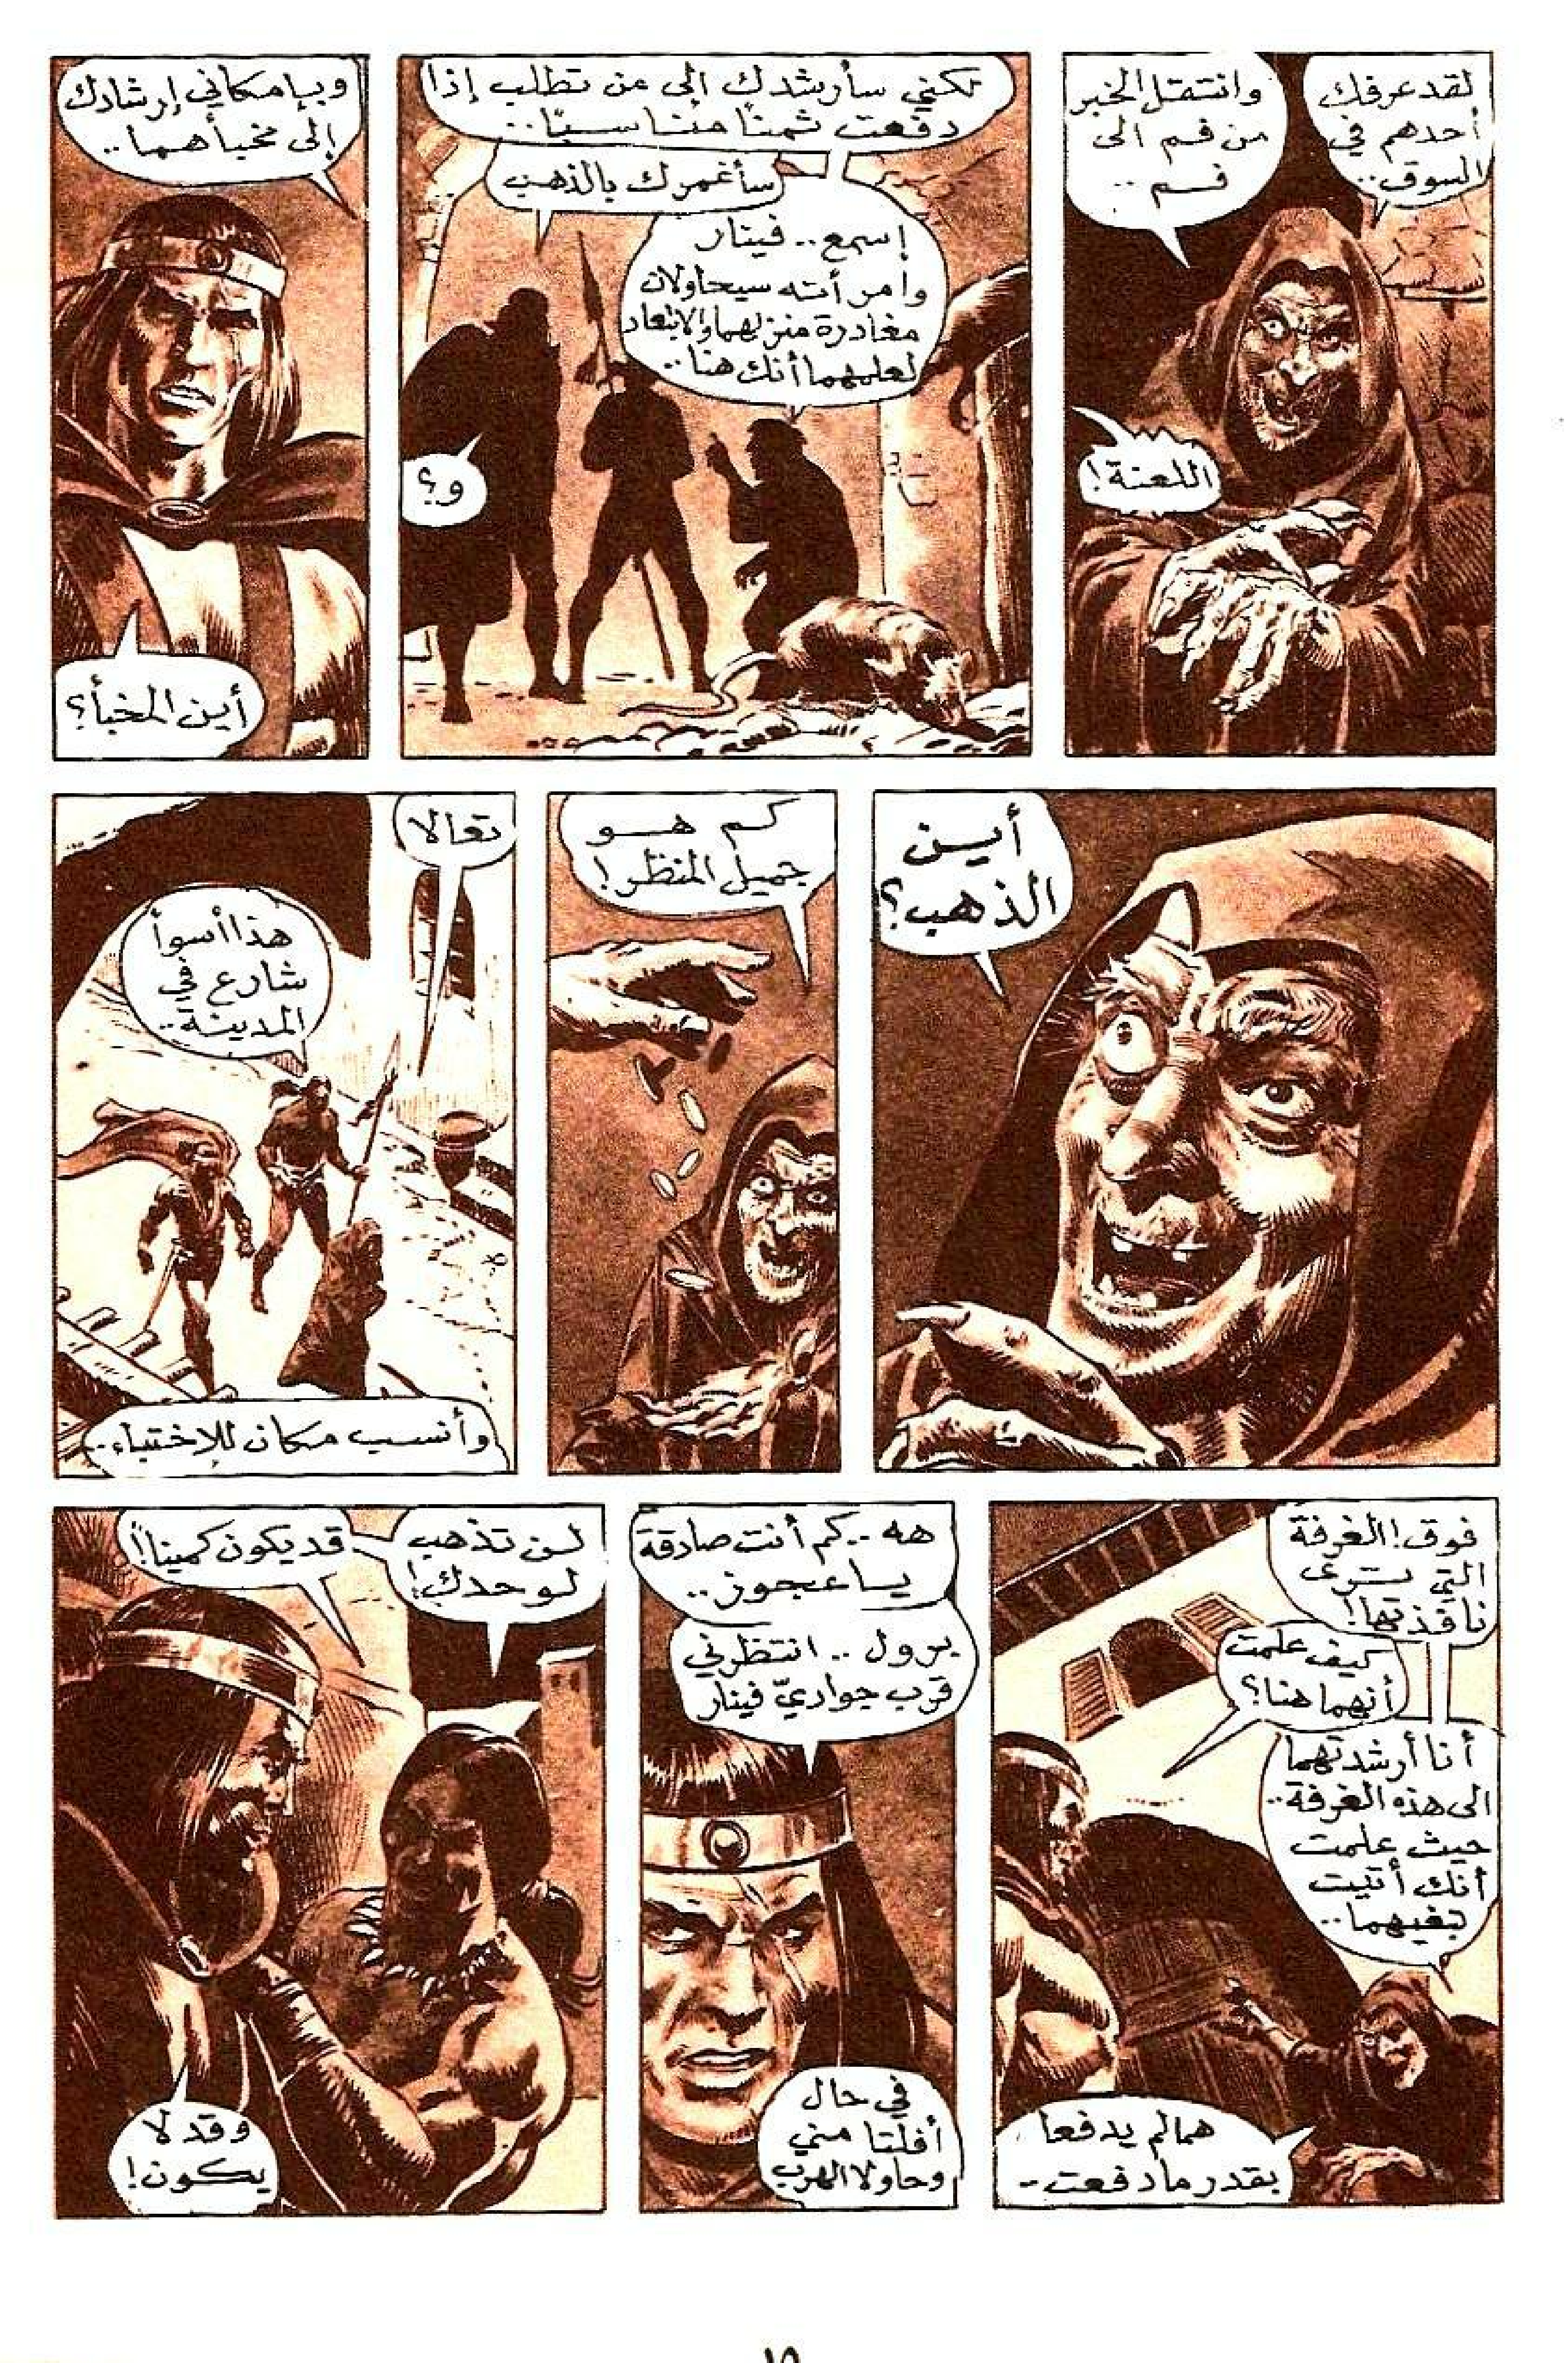 لقد عرفك
أحدهم في
السوق..
وانتقل الخبر
من فم الى
فم ..
اللعنة!
لكني سأرشدك إلى من تطلب إذا
دفعت ثمنًا مناسبًا..
سأغمرك بالذهب
إسمع.. فينار
وامرأته سيحاولان
مغادرة منزلهما والابتعاد
لعلمهما أنك هنا..
و؟
وبإمكاني إرشادك
إلى مخبأهما..
أين المخبأ؟
أين
الذهب؟
كم هو
جميل المنظر!
تعالا
هذا أسوأ
شارع في
المدينة..
وأنسب مكان للإختباء..
فوق! الغرفة
التي ترى
نافذتها!
كيف علمت
أنهما هنا؟
أنا أرشدتهما
الى هذه الغرفة..
حيث علمت
أنك أتيت
تبغيهما..
هما لم يدفعا
بقدر ما دفعت..
هه ..كم أنت صادقة
يا عجوز..
يرول .. انتظرني
قرب جواديّ فينار
في حال
أفلتا مني
وحاولا الهرب
لن تذهب
لوحدك!
قد يكون كمينا!
وقد لا
يكون!
١٥